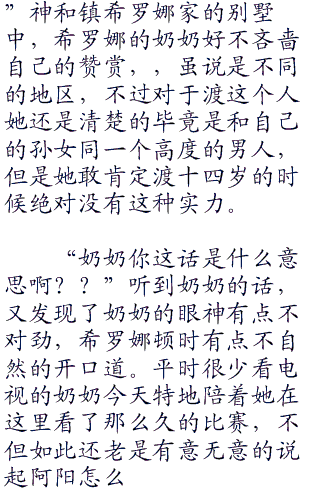 ”神和镇希罗娜家的别墅
中，希罗娜的奶奶好不吝啬
自己的赞赏，，虽说是不同
的地区，不过对于渡这个人
她还是清楚的毕竟是和自己
的孙女同一个高度的男人，
但是她敢肯定渡十四岁的时
候绝对没有这种实力。
“奶奶你这话是什么意
思啊？？”听到奶奶的话，
又发现了奶奶的眼神有点不
对劲，希罗娜顿时有点不自
然的开口道。平时很少看电
视的奶奶今天特地陪着她在
这里看了那么久的比赛，不
但如此还老是有意无意的说
起阿阳怎么